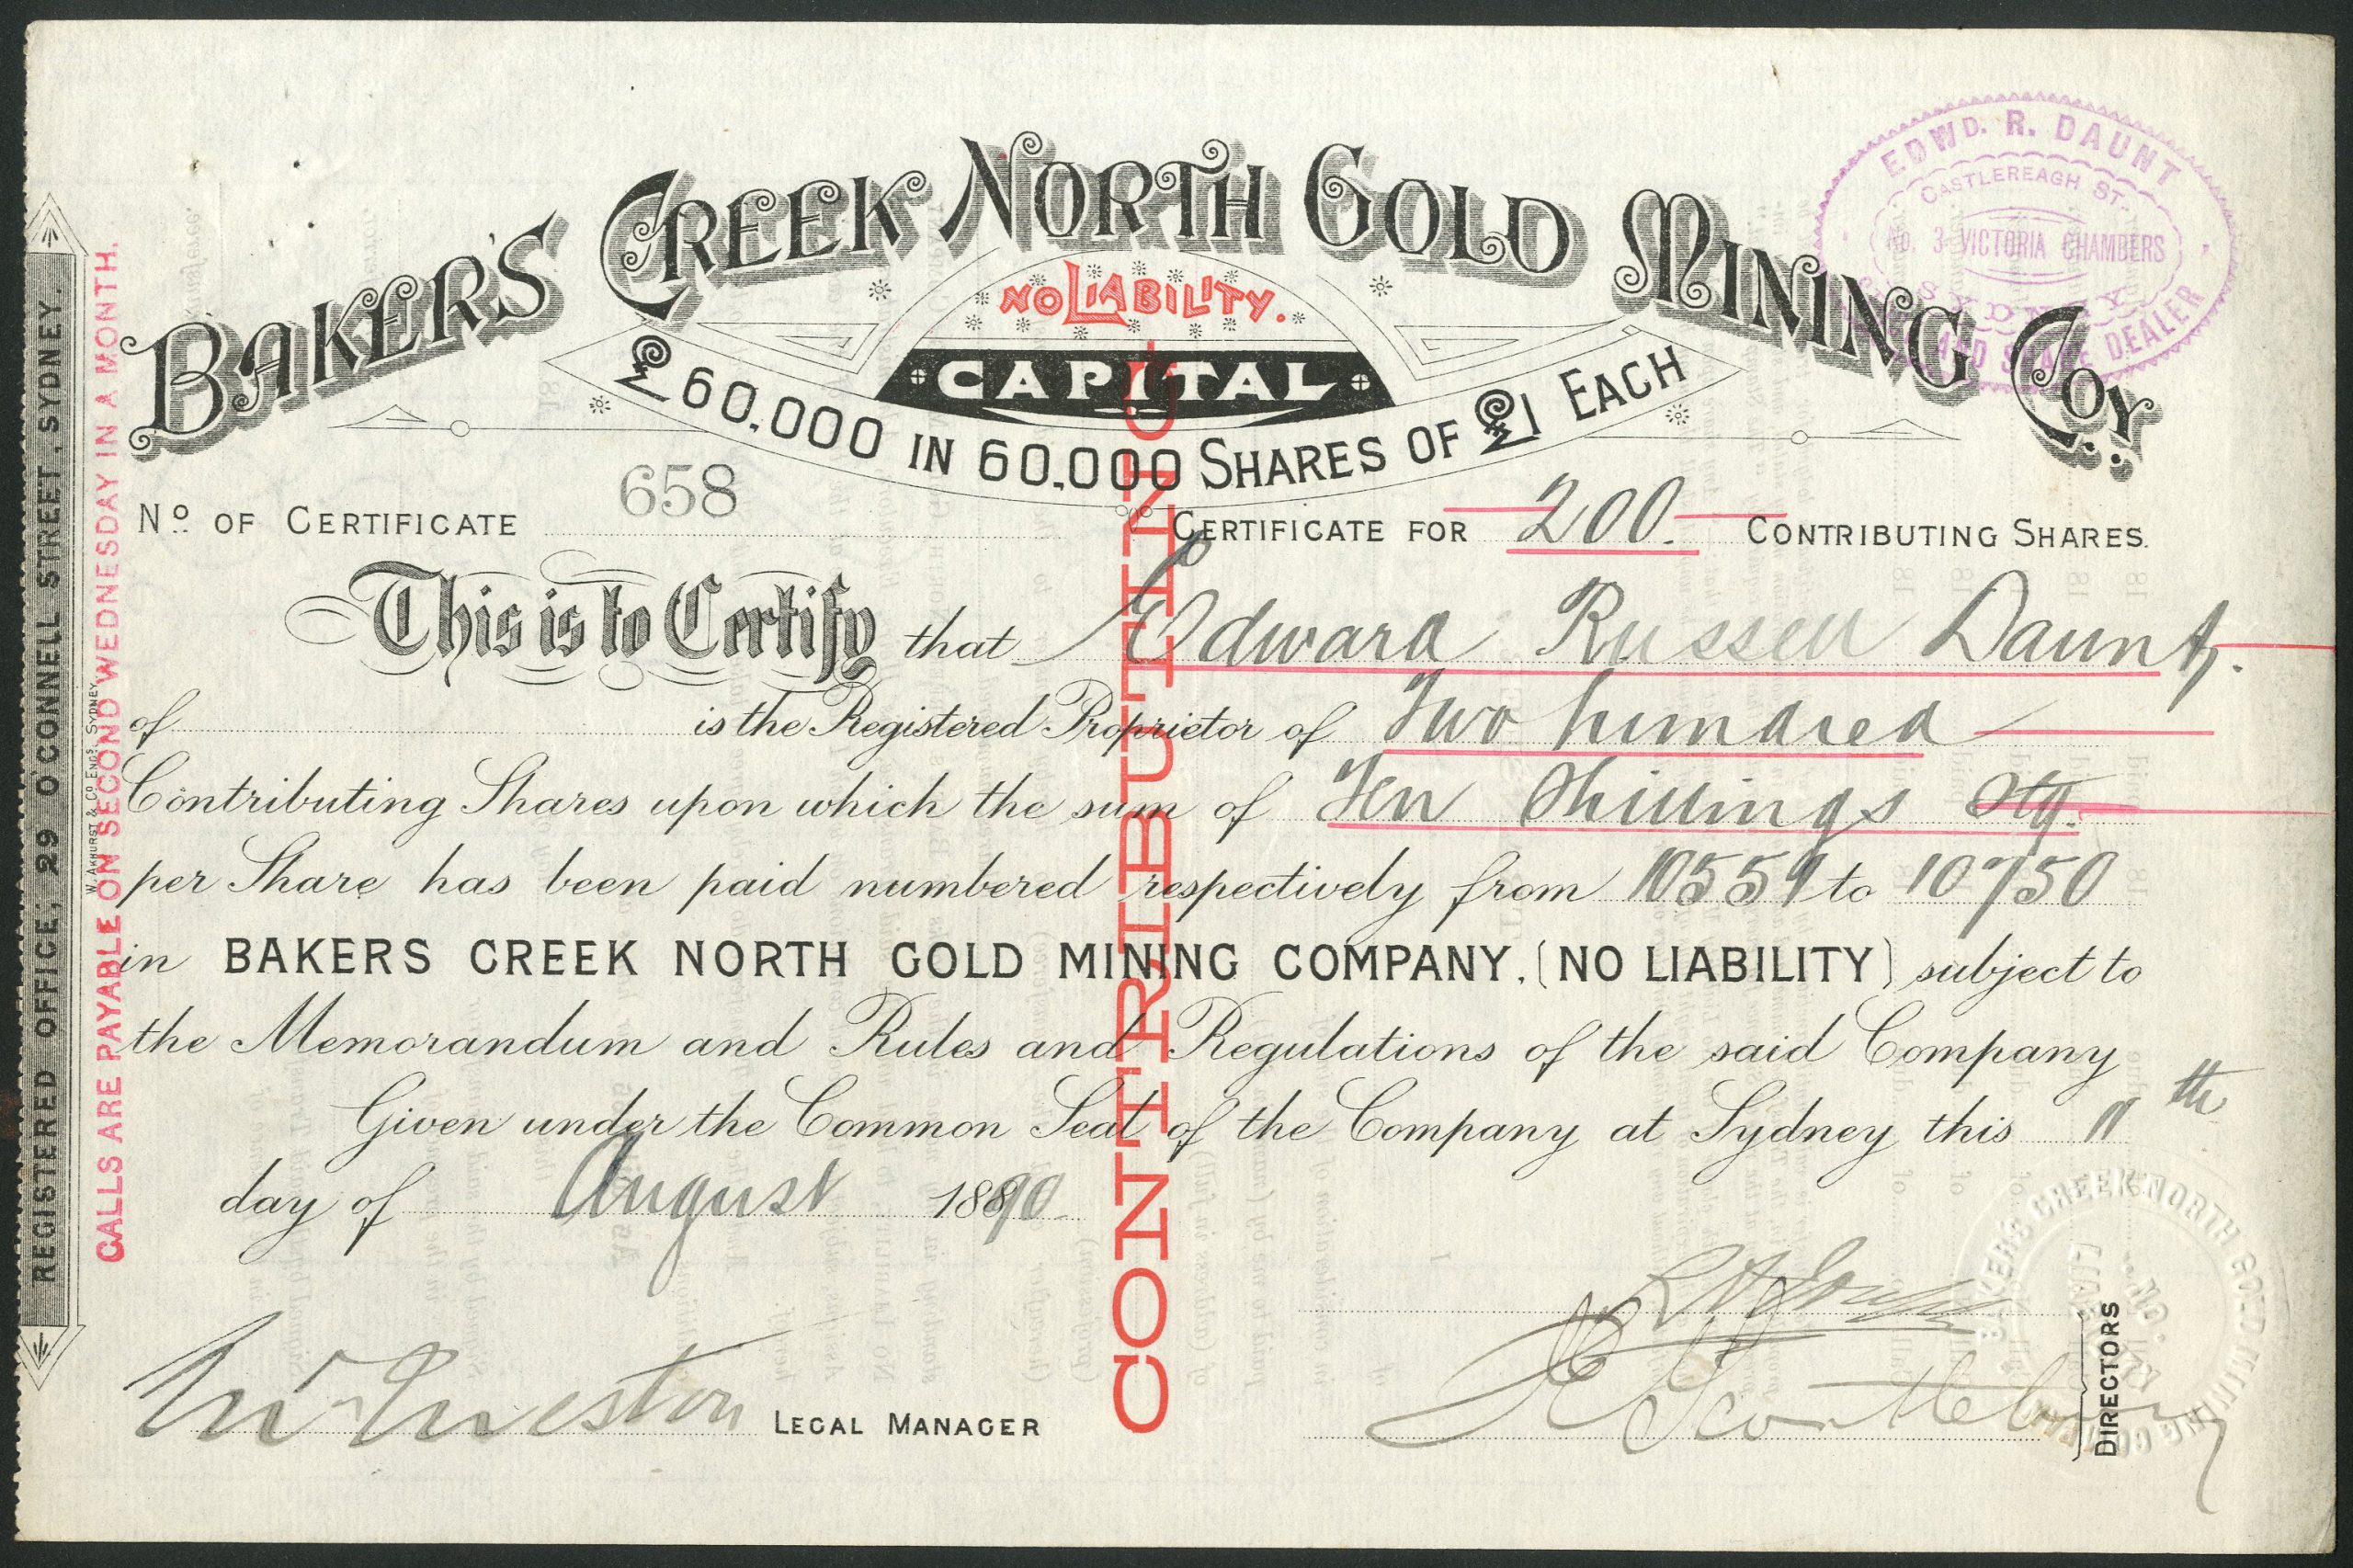 BAKER'S CREEK NORTH GOLD MINING COY.
NO LIABILITY.
CAPITAL
£60,000 IN 60,000 SHARES OF £1 EACH
EDWD. R. DAUNT
CASTLEREAGH ST.
No. 3 VICTORIA CHAMBERS
SYDNEY
AND SHARE DEALER
No. OF CERTIFICATE 658 CERTIFICATE FOR 200. CONTRIBUTING SHARES.
This is to Certify that Edward Russell Daunt.
of is the Registered Proprietor of Two hundred
Contributing Shares upon which the sum of Ten Shillings Stg.
per Share has been paid numbered respectively from 10551 to 10750
in BAKERS CREEK NORTH GOLD MINING COMPANY, (NO LIABILITY) subject to
the Memorandum and Rules and Regulations of the said Company
Given under the Common Seal of the Company at Sydney this 11th
day of August 1890
LEGAL MANAGER
DIRECTORS
CONTRIBUTING
REGISTERED OFFICE, 29 O'CONNELL STREET, SYDNEY.
CALLS ARE PAYABLE ON SECOND WEDNESDAY IN A MONTH.
W. AKHURST & CO ENGS. SYDNEY
BAKER'S CREEK NORTH GOLD MINING COMPANY
NO LIABILITY